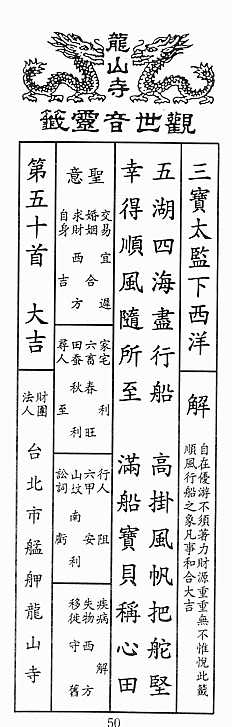 龍山寺
觀世音靈籤
三寶太監下西洋
解
自在優游不須著力財源重重無不惟悅此籤
順風行船之象凡事和合大吉
五湖四海盡行船 高掛風帆把舵堅
幸得順風隨所至 滿船寶貝稱心田
聖意
交易 宜遲
婚姻 合
求財 西方
自身 吉
家宅 利
六畜 春旺
田蚕 秋利
尋人 至
行人 阻
六甲 安
山坟 南利
訟詞 虧
疾病 解
失物 西方
移徙 守舊
第五十首 大吉
財團法人 台北市艋舺龍山寺
50